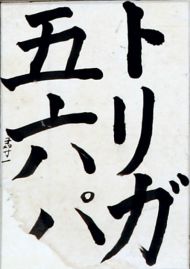 トリガ
五六パ